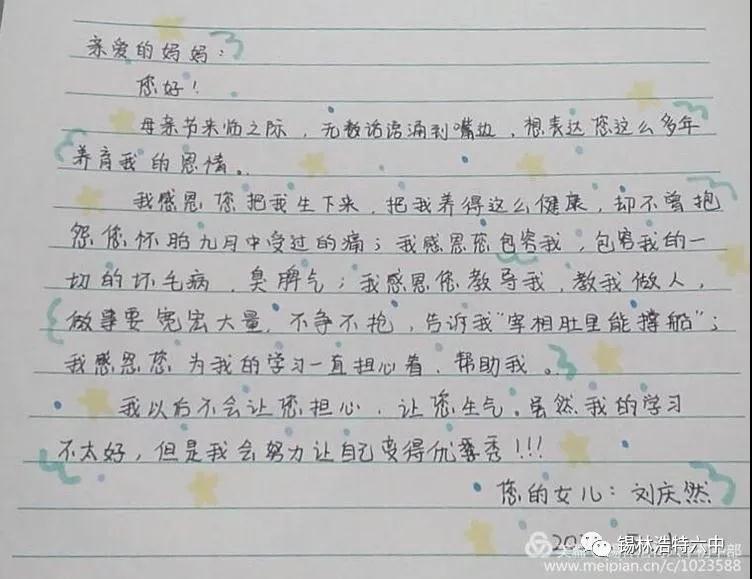 亲爱的妈妈：
您好！
母亲节来临之际，无数话语涌到嘴边，想表达您这么多年
养育我的恩情。
我感恩您把我生下来，把我养得这么健康，却不曾抱
怨您怀胎九月中受过的痛；我感恩您包容我，包容我的一
切的坏毛病，臭脾气；我感恩您教导我，教我做人，
做事要宽宏大量，不争不抢，告诉我“宰相肚里能撑船”；
我感恩您为我的学习一直担心着，帮助我。
我以后不会让您担心，让您生气。虽然我的学习
不太好，但是我会努力让自己变得优秀！！！
您的女儿：刘庆然
20
锡林浩特六中
www.meipian.cn/c/1023588